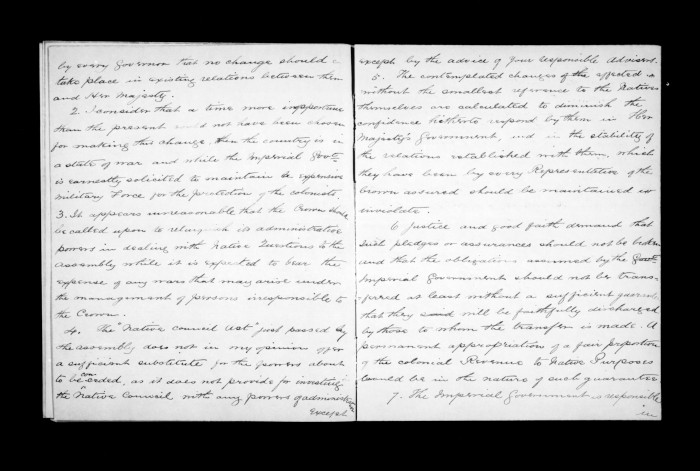 by every Governor that no change should
take place in existing relations between them
and Her Majesty.
2. I consider that a time more inopportune
than the present could not have been chosen
for making this change when the country is in
a state of war and while the Imperial Govt
is earnestly solicited to maintain an expensive
Military Force for the protection of the colonists
3. It appears unreasonable that the Crown should
be called upon to relinquish its administrative
powers in dealing with Native Questions to the
assembly while it is expected to bear the
expense of any wars that may arise under
the management of persons irresponsible to
the Crown.
4. The "Native Council Act" just passed by
the assembly does not in my opinion offer
a sufficient substitute for the powers about
to be conceded, as it does not provide for investing
the "Native Council with any powers of administration
Except
except by the advice of your responsible advisers.
5. The contemplated changes if effected
without the smallest reference to the Natives
themselves are calculated to diminish the
confidence hitherto reposed by them in Her
Majesty's Government, and in the stability of
the relations established with them, which
they have been by every Representative of the
Crown assured should be maintained
inviolate.
6 Justice and good faith demand that
such pledges or assurances should not be broken
and that the obligations assumed by the Govt
Imperial Government should not be trans-
ferred at least without a sufficient guarantee
that they will be faithfully discharged
by those to whom the transfer is made. A
permanent appropriation of a fair proportion
of the colonial Revenue to Native Purposes
would be in the nature of such guarantee.
7. The Imperial Government is responsible
in